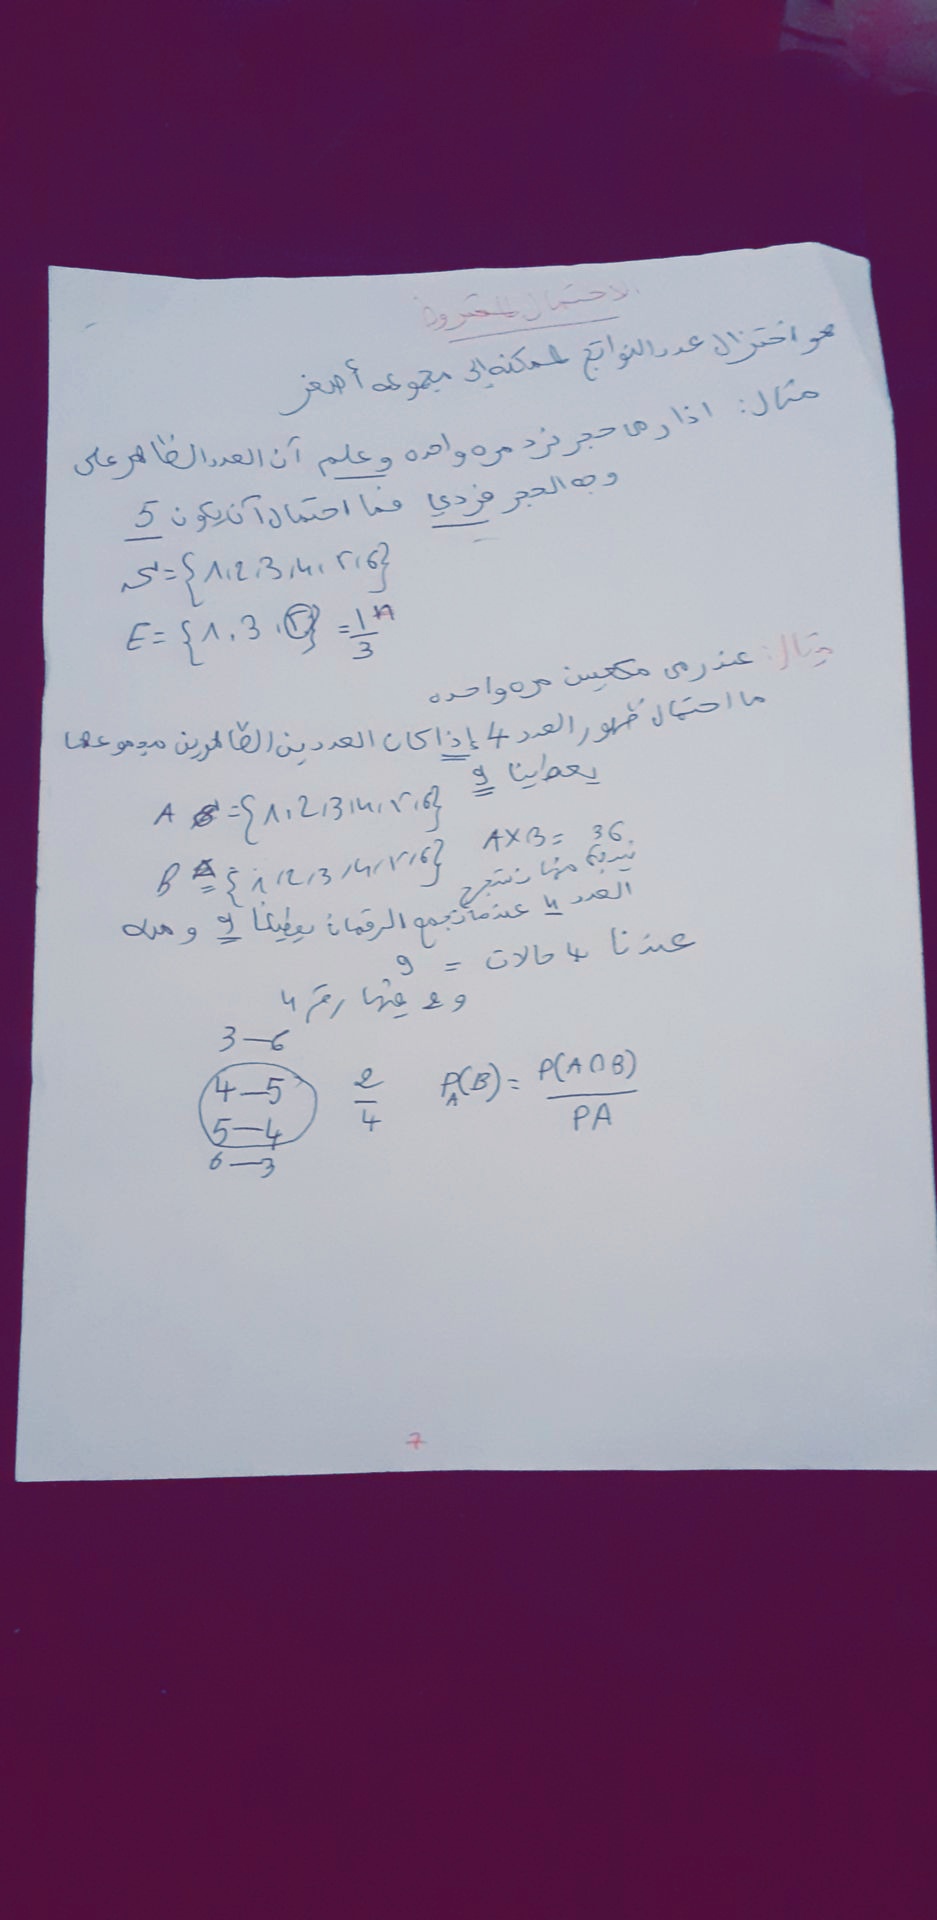 الاحتمال المشروط
هو اختزال عدد النواتج الممكنة إلى مجموعه أصغر
مثال: اذا رمى حجر نرد مره واحده وعلم آن العدد الظاهر على
وجه الحجر فردي فما احتمال آن يكون 5
S={1,2,3,4,5,6}
E={1,3,5} =1/3
مثال: عند رمى مكعبين مره واحده
ما احتمال ظهور العدد 4 إذا كان العددين الظاهرين مجموعهما
يعطينا 9
A ={1,2,3,4,5,6}
B = {1,2,3,4,5,6} A×B= 36
نريد منها نستخرج
العدد 4 عندما نجمع الرقمان يعطينا 9 ومنه
عندنا 4 حالات = 9
و 2 فيها رقم 4
3—6
4—5 2/4 P_A(B)= P(A∩B)/PA
5—4
6—3
7